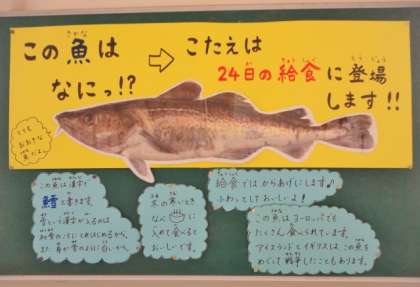 この魚は
なにっ!?
⇨
こたえは
24日の給食に登場
します!!
とても
おおきな
魚だよ。
この魚は漢字で
鱈と書きます。
雪という漢字が入るのは
初雪のころにとれはじめるから。
また、身が雪のように白いから。
冬の寒いとき
なべに
入れて食べると
おいしいです。
給食では、からあげにします♪
ふわっとしておいしいよ!
この魚はヨーロッパでも
たくさん食べられています。
アイスランドとイギリスは、この魚を
めぐって戦争したこともあります。